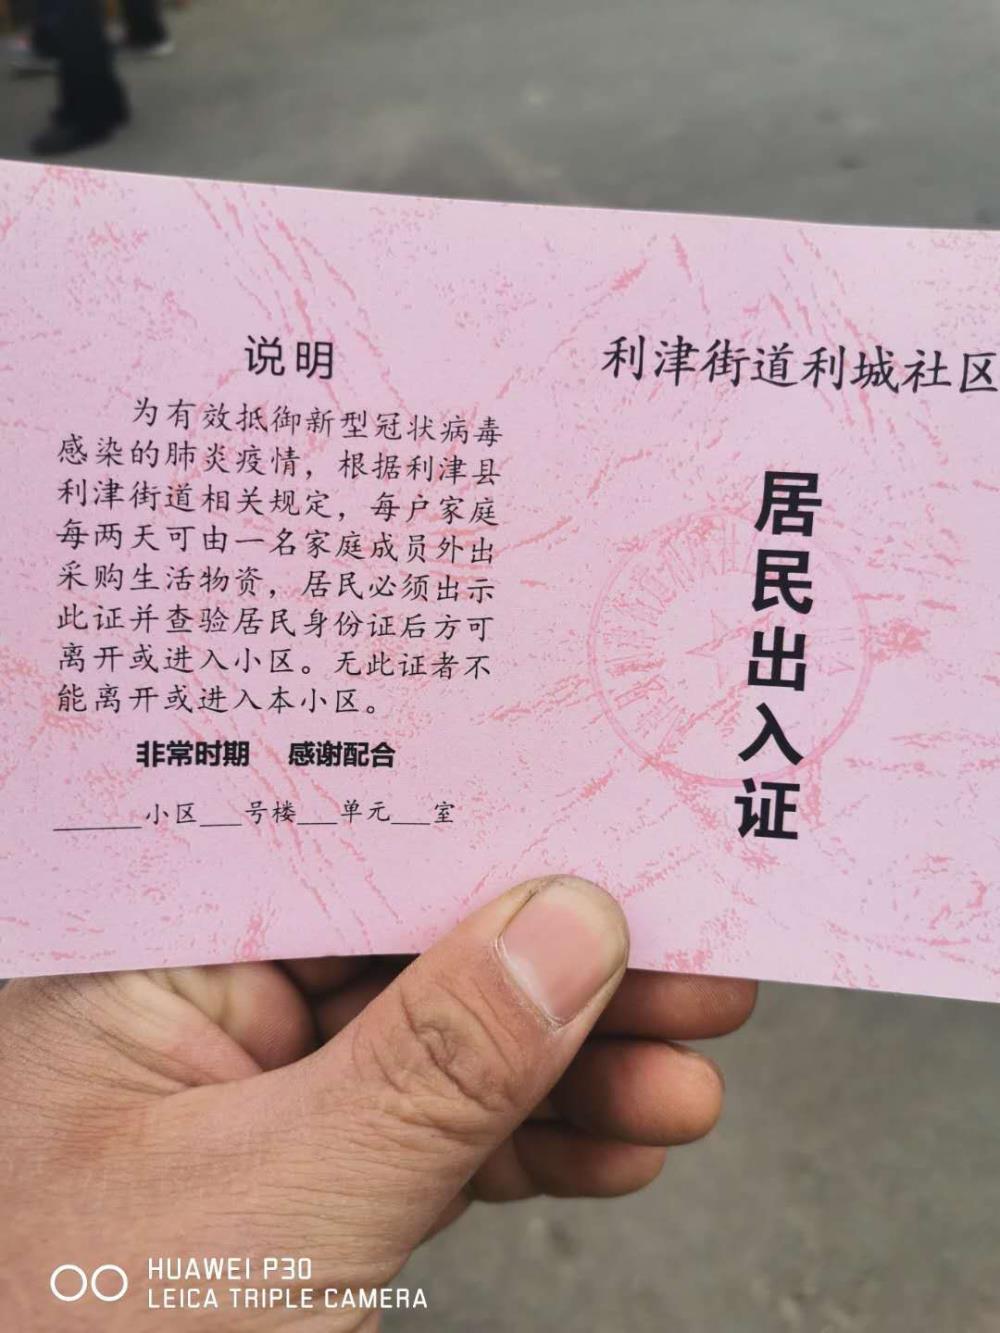 说明
为有效抵御新型冠状病毒
感染的肺炎疫情，根据利津县
利津街道相关规定，每户家庭
每两天可由一名家庭成员外出
采购生活物资，居民必须出示
此证并查验居民身份证后方可
离开或进入小区。无此证者不
能离开或进入本小区。
非常时期 感谢配合
______小区___号楼___单元___室
利津街道利城社区
居民出入证
HUAWEI P30
LEICA TRIPLE CAMERA